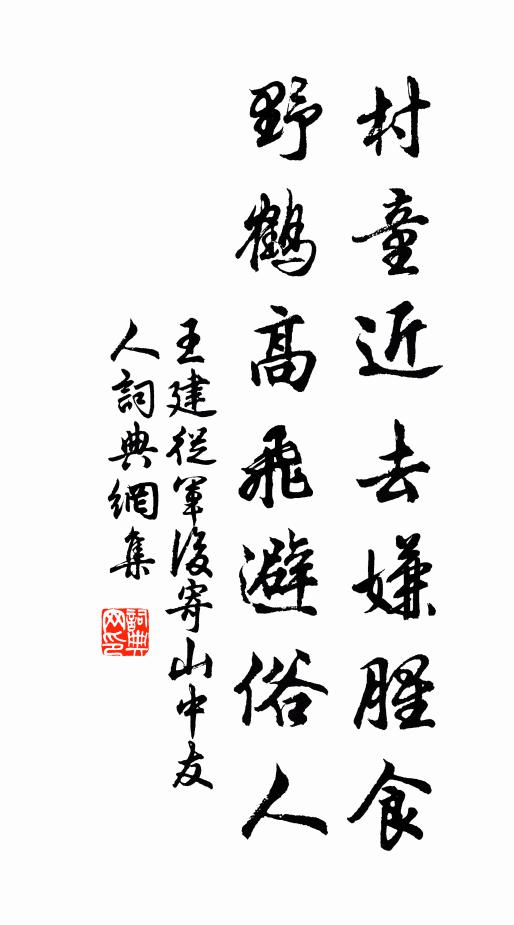 村童近去嫌腥食
野鶴高飛避俗人
王建從軍後寄山中友
人詞典網集
詞典网印